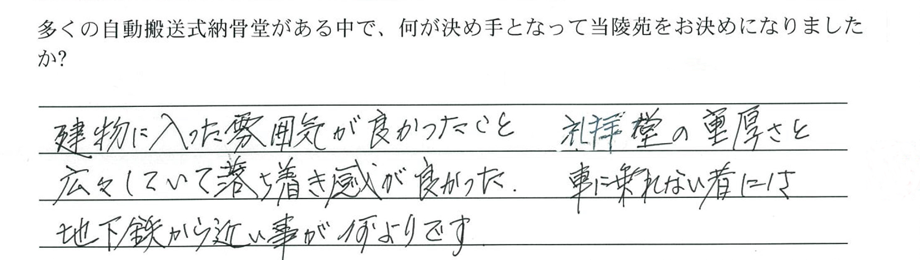 多くの自動搬送式納骨堂がある中で、何が決め手となって当陵苑をお決めになりました
か?
建物に入った雰囲気が良かったこと 礼拝堂の重厚さと
広々していて落ち着き感が良かった. 車に乗れない者には
地下鉄から近い事が何よりです